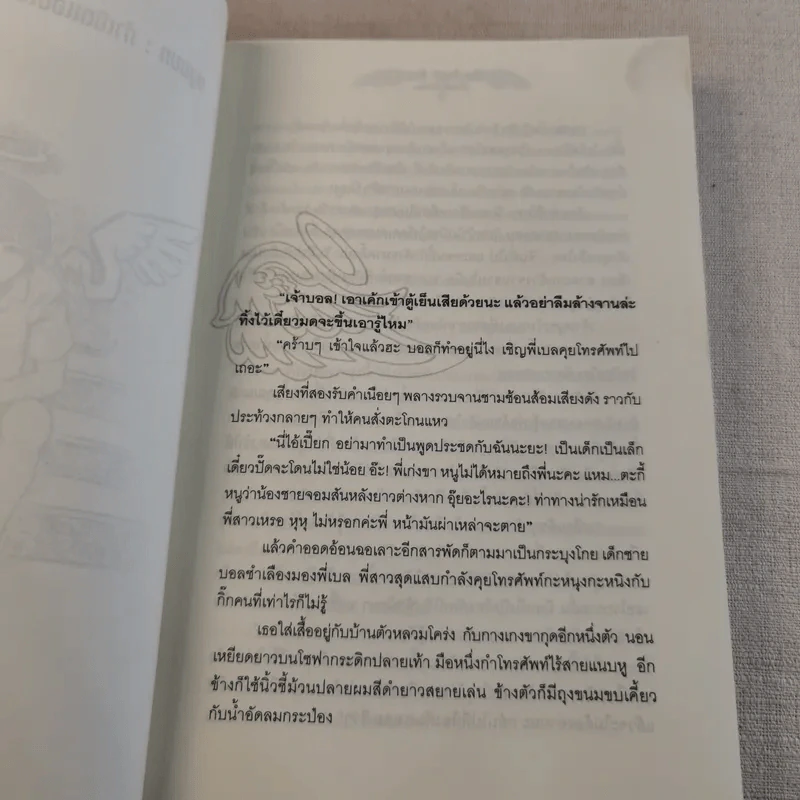 บทแรก : กำเนิด
"เจ้าบอล! เอาเค้กเข้าตู้เย็นเสียด้วยนะ แล้วอย่าลืมล้างจานล่ะ
ทิ้งไว้เดี๋ยวมดจะขึ้นเอารู้ไหม"
"คร้าบๆ เข้าใจแล้วฮะ บอลก็ทำอยู่นี่ไง เชิญพี่เบลคุยโทรศัพท์ไป
เถอะ"
เสียงที่สองรับคำเนือยๆ พลางรวบจานชามช้อนส้อมเสียงดัง ราวกับ
ประท้วงกลายๆ ทำให้คนสั่งตะโกนแหว
"นี่ไอ้เปี๊ยก อย่ามาทำเป็นพูดประชดกับฉันนะยะ! เป็นเด็กเป็นเล็ก
เดี๋ยวปั๊ดจะโดนไม่ใช่น้อย อ๊ะ! พี่เก่งขา หนูไม่ได้หมายถึงพี่นะคะ แหม...ตะกี้
หนูว่าน้องชายจอมสันหลังยาวต่างหาก อุ๊ยอะไรนะคะ! ท่าทางน่ารักเหมือน
พี่สาวเหรอ หุหุ ไม่หรอกค่ะพี่ หน้ามันผ่าเหล่าจะตาย"
แล้วคำออดอ้อนฉอเลาะอีกสารพัดก็ตามมาเป็นกระบุงโกย เด็กชาย
บอลชำเลืองมองพี่เบล พี่สาวสุดแสบกำลังคุยโทรศัพท์กะหนุงกะหนิงกับ
กิ๊กคนที่เท่าไรก็ไม่รู้
เธอใส่เสื้ออยู่กับบ้านตัวหลวมโคร่ง กับกางเกงขากุดอีกหนึ่งตัว นอน
เหยียดยาวบนโซฟากระดิกปลายเท้า มือหนึ่งกำโทรศัพท์ไร้สายแนบหู อีก
ข้างก็ใช้นิ้วชี้ม้วนปลายผมสีดำยาวสยายเล่น ข้างตัวก็มีถุงขนมขบเคี้ยว
กับน้ำอัดลมกระป๋อง